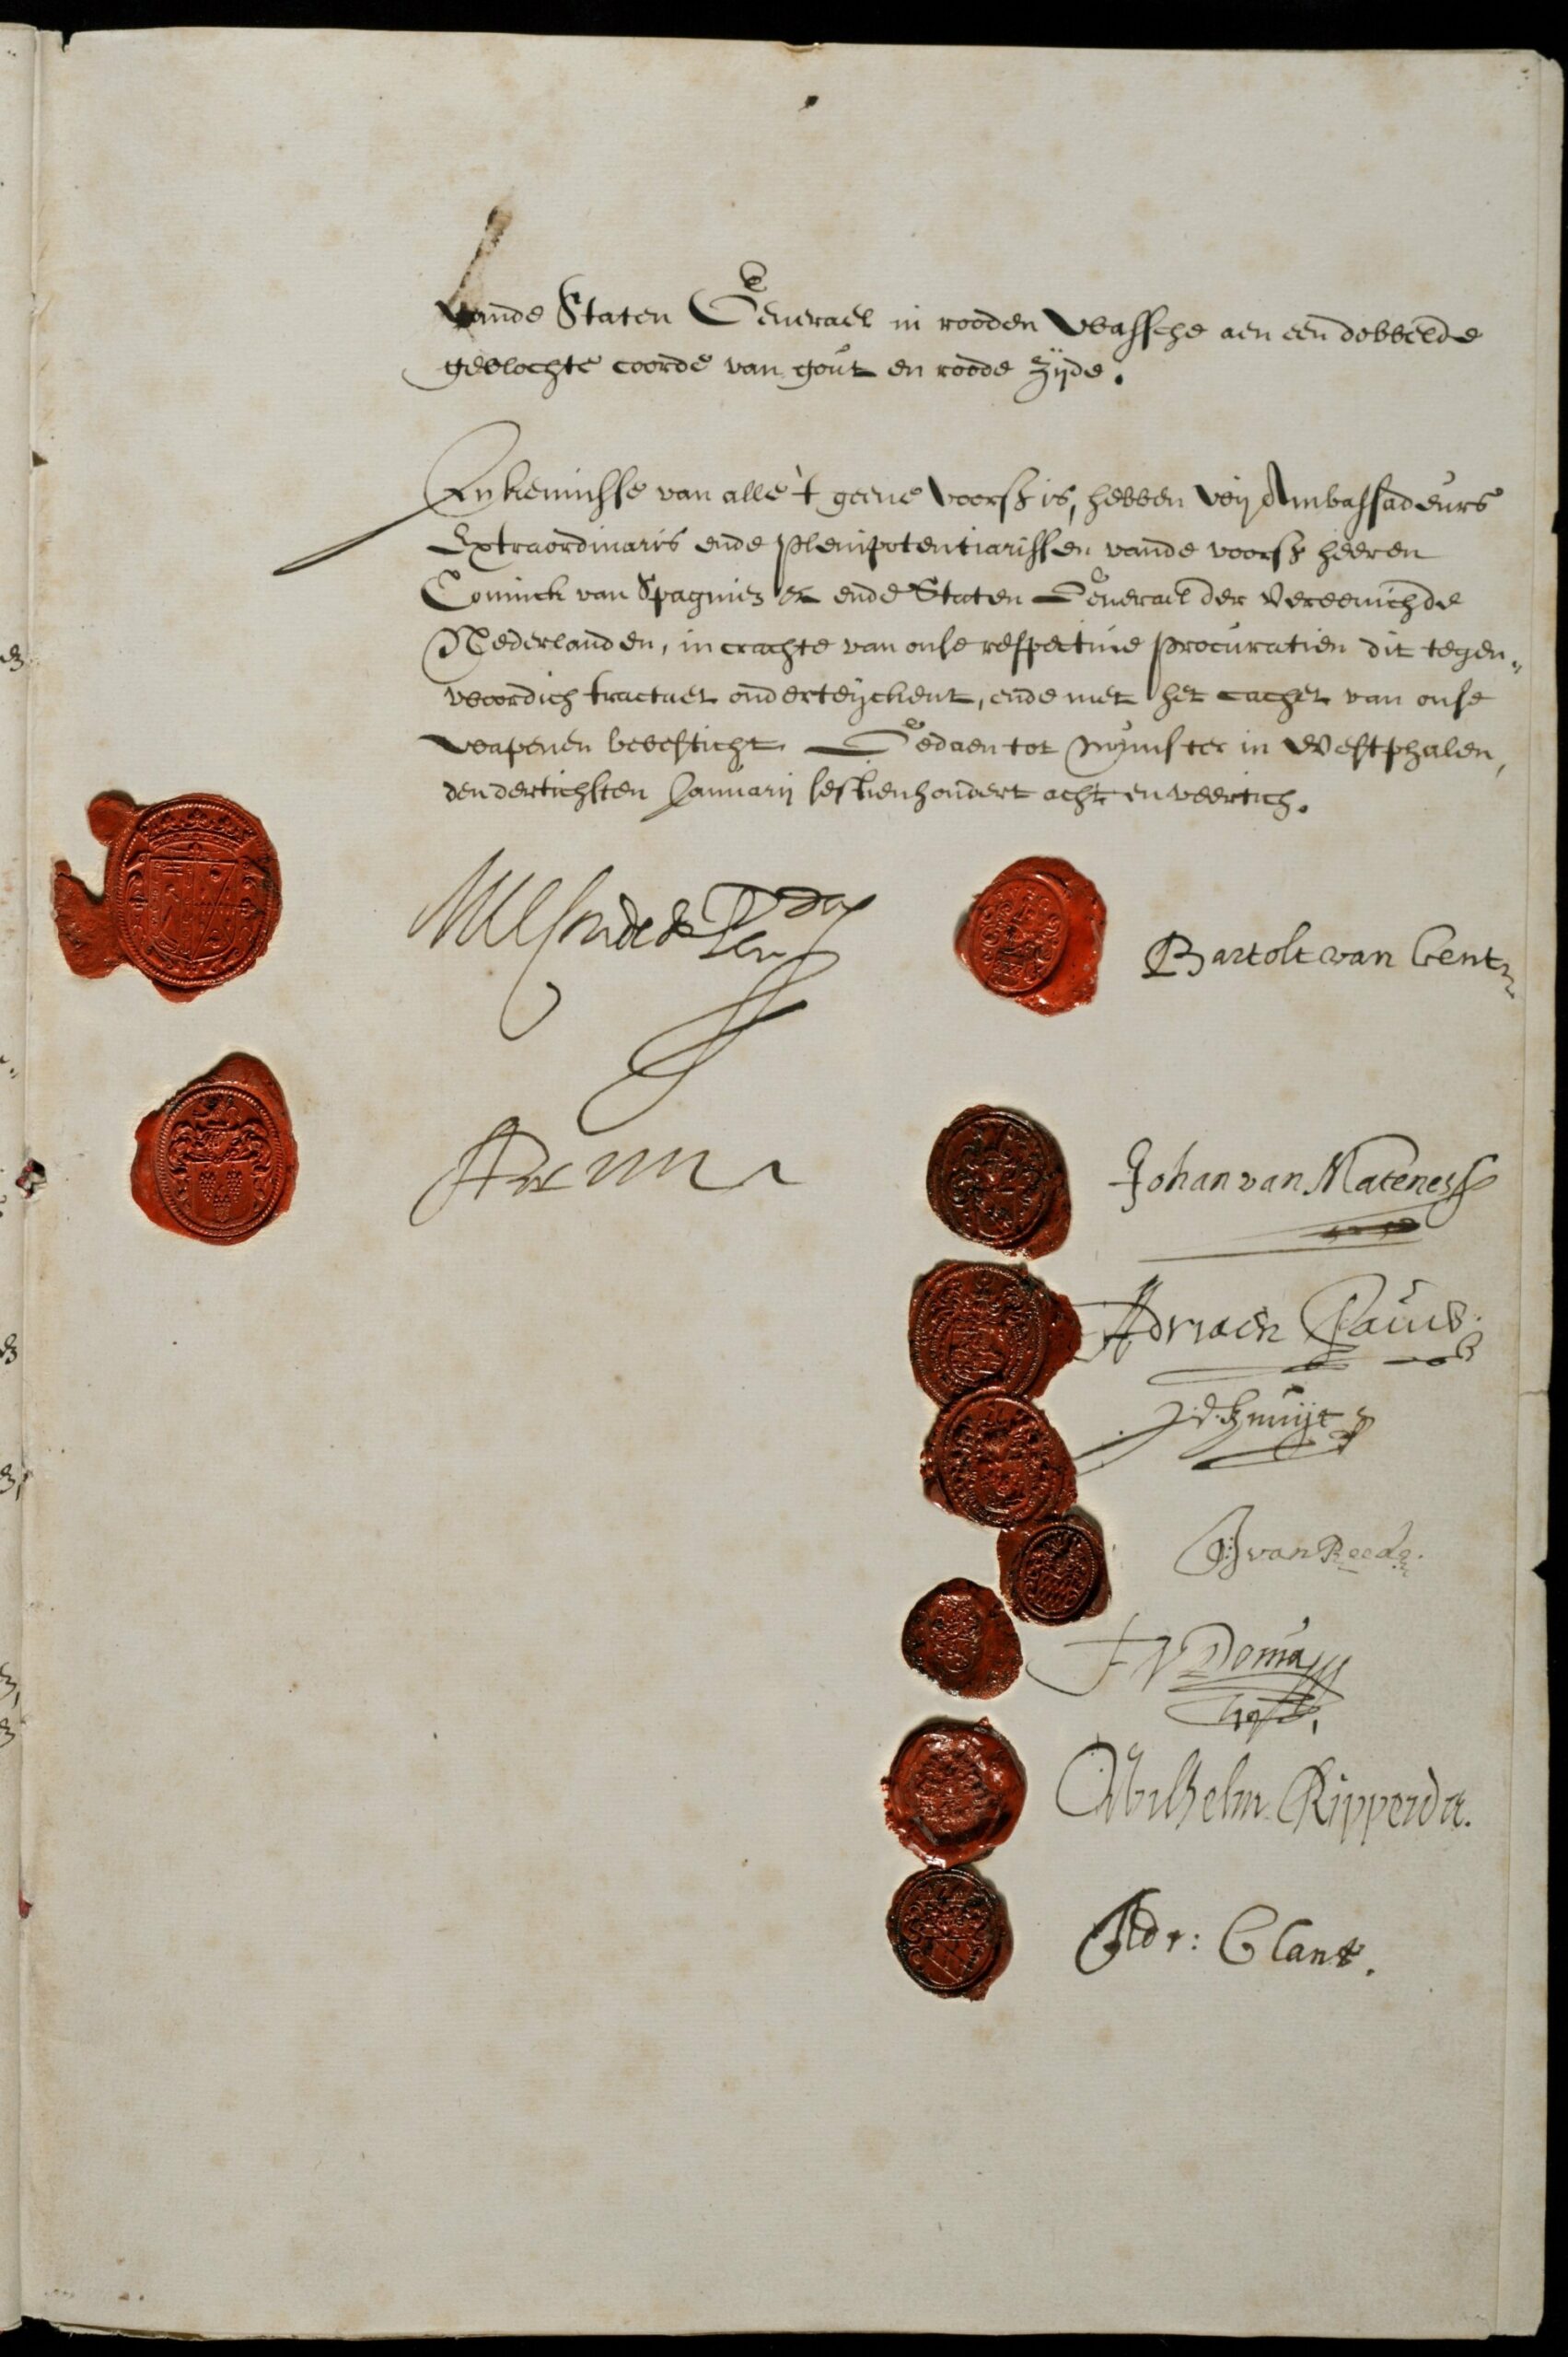 vande Staten Generael in rooden Wassche aen een dobbelde
gevlochte coorde van gout en roode zijde.
In kennisse van alle 't geene voorsz is, hebben Wij Ambassadeurs
Extraordinaris ende Plenipotentiarissen vande voorsz heeren
Coninck van Spagnien ende Staten Generael der Vereenichde
Nederlanden, in crachte van onse respective Procuratien dit tegen„
woordich tractaet onderteijckent, ende met het cachet van onse
Wapenen bevesticht. Gedaen tot Munster in Westphalen,
den dertichsten Januarij sestienhondert acht en veertich.
Bartolt van Gent
Johan van Mateness
Adriaen Pauw.
J. d. Knuijt
G. van Reede.
F V Donia
Wilhelm Ripperda.
Adr: Clant.